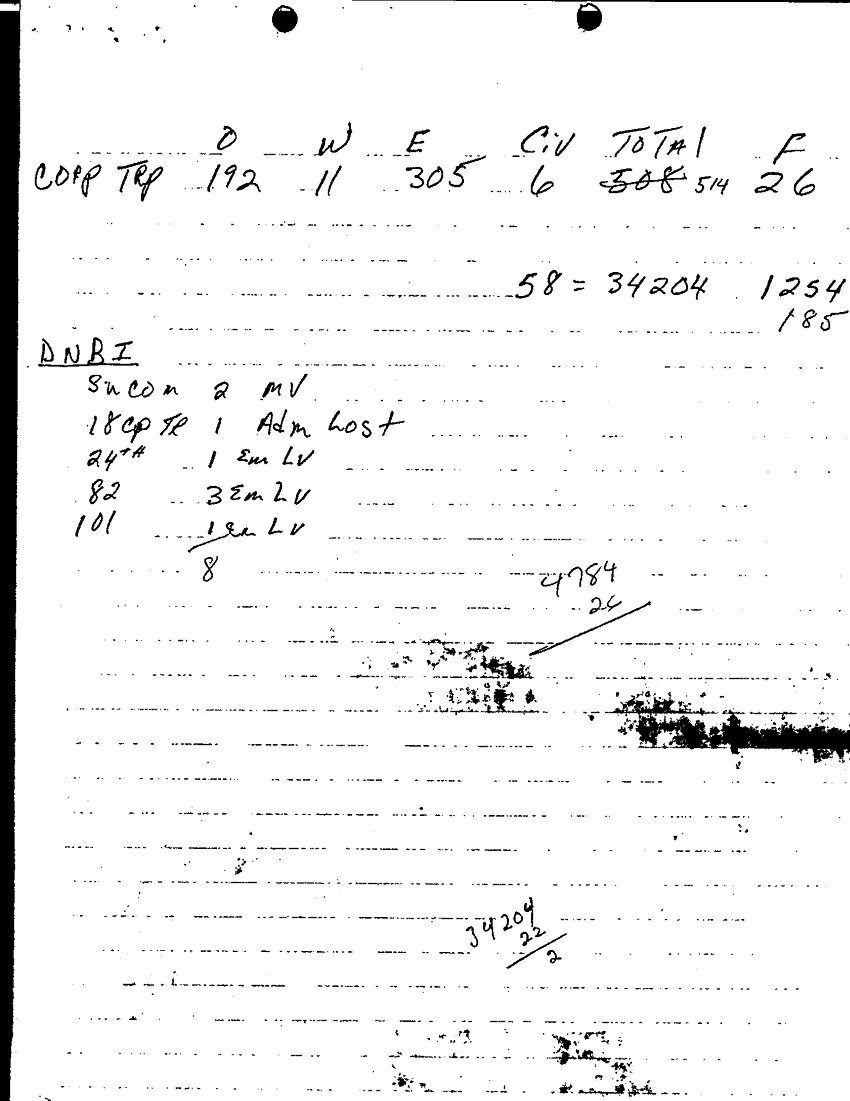 O W E Civ TOTAl F
COrp Trp 192 11 305 6 508 514 26
58 = 34204 1254
185
DNBI
2 MV
18 Cp TR 1 Adm host
24th 1 Em LV
82 3 Em LV
101 1 Em LV
8
4784
26
34204
22
2